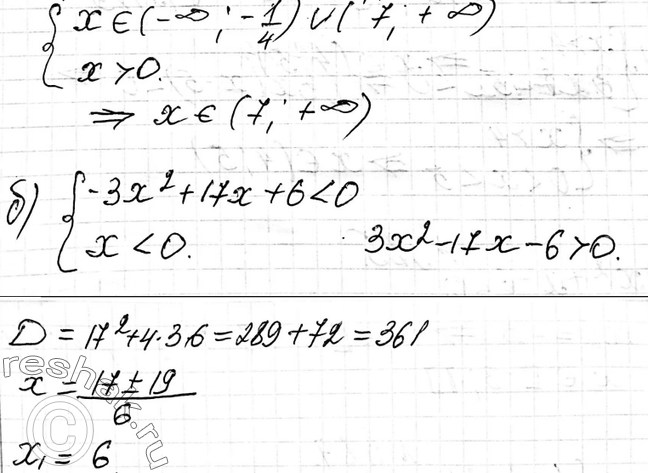 { x ∈ (-∞; -1/4) ∪ (7; +∞)
x > 0.
⇒ x ∈ (7; +∞)
б) { -3x² + 17x + 6 < 0
x < 0. 3x² - 17x - 6 > 0.
D = 17² + 4·3·6 = 289 + 72 = 361
x = (17 ± 19)/6
x₁ = 6
reshak.ru
©